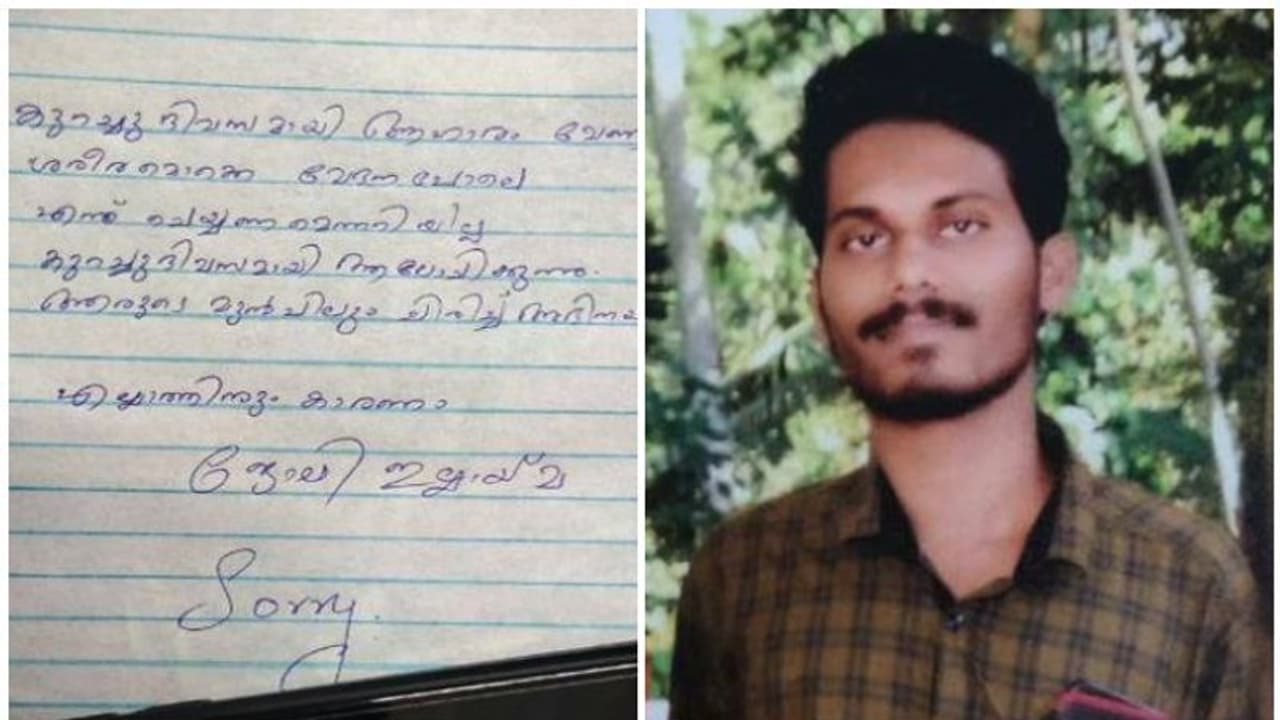 കുറച്ചു ദിവസമായി ആഹാരം വേണ്ട
ശരീരമൊക്കെ വേദന പോലെ
എന്ത് ചെയ്യണമെന്നറിയില്ല
കുറച്ചുദിവസമായി ആലോചിക്കുന്നു.
ആരുടെ മുൻപിലും ചിരിച്ച്
എല്ലാത്തിനും കാരണം
ജോലി ഇല്ലായ്മ
Sorry.